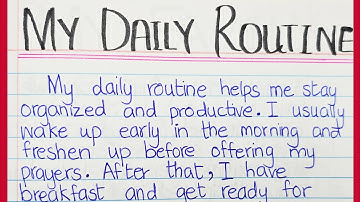 MY DAILY ROUTINE
My daily routine helps me stay
organized and productive. I usually
wake up early in the morning and
freshen up before offering my
prayers. After that, I have
breakfast and get ready for